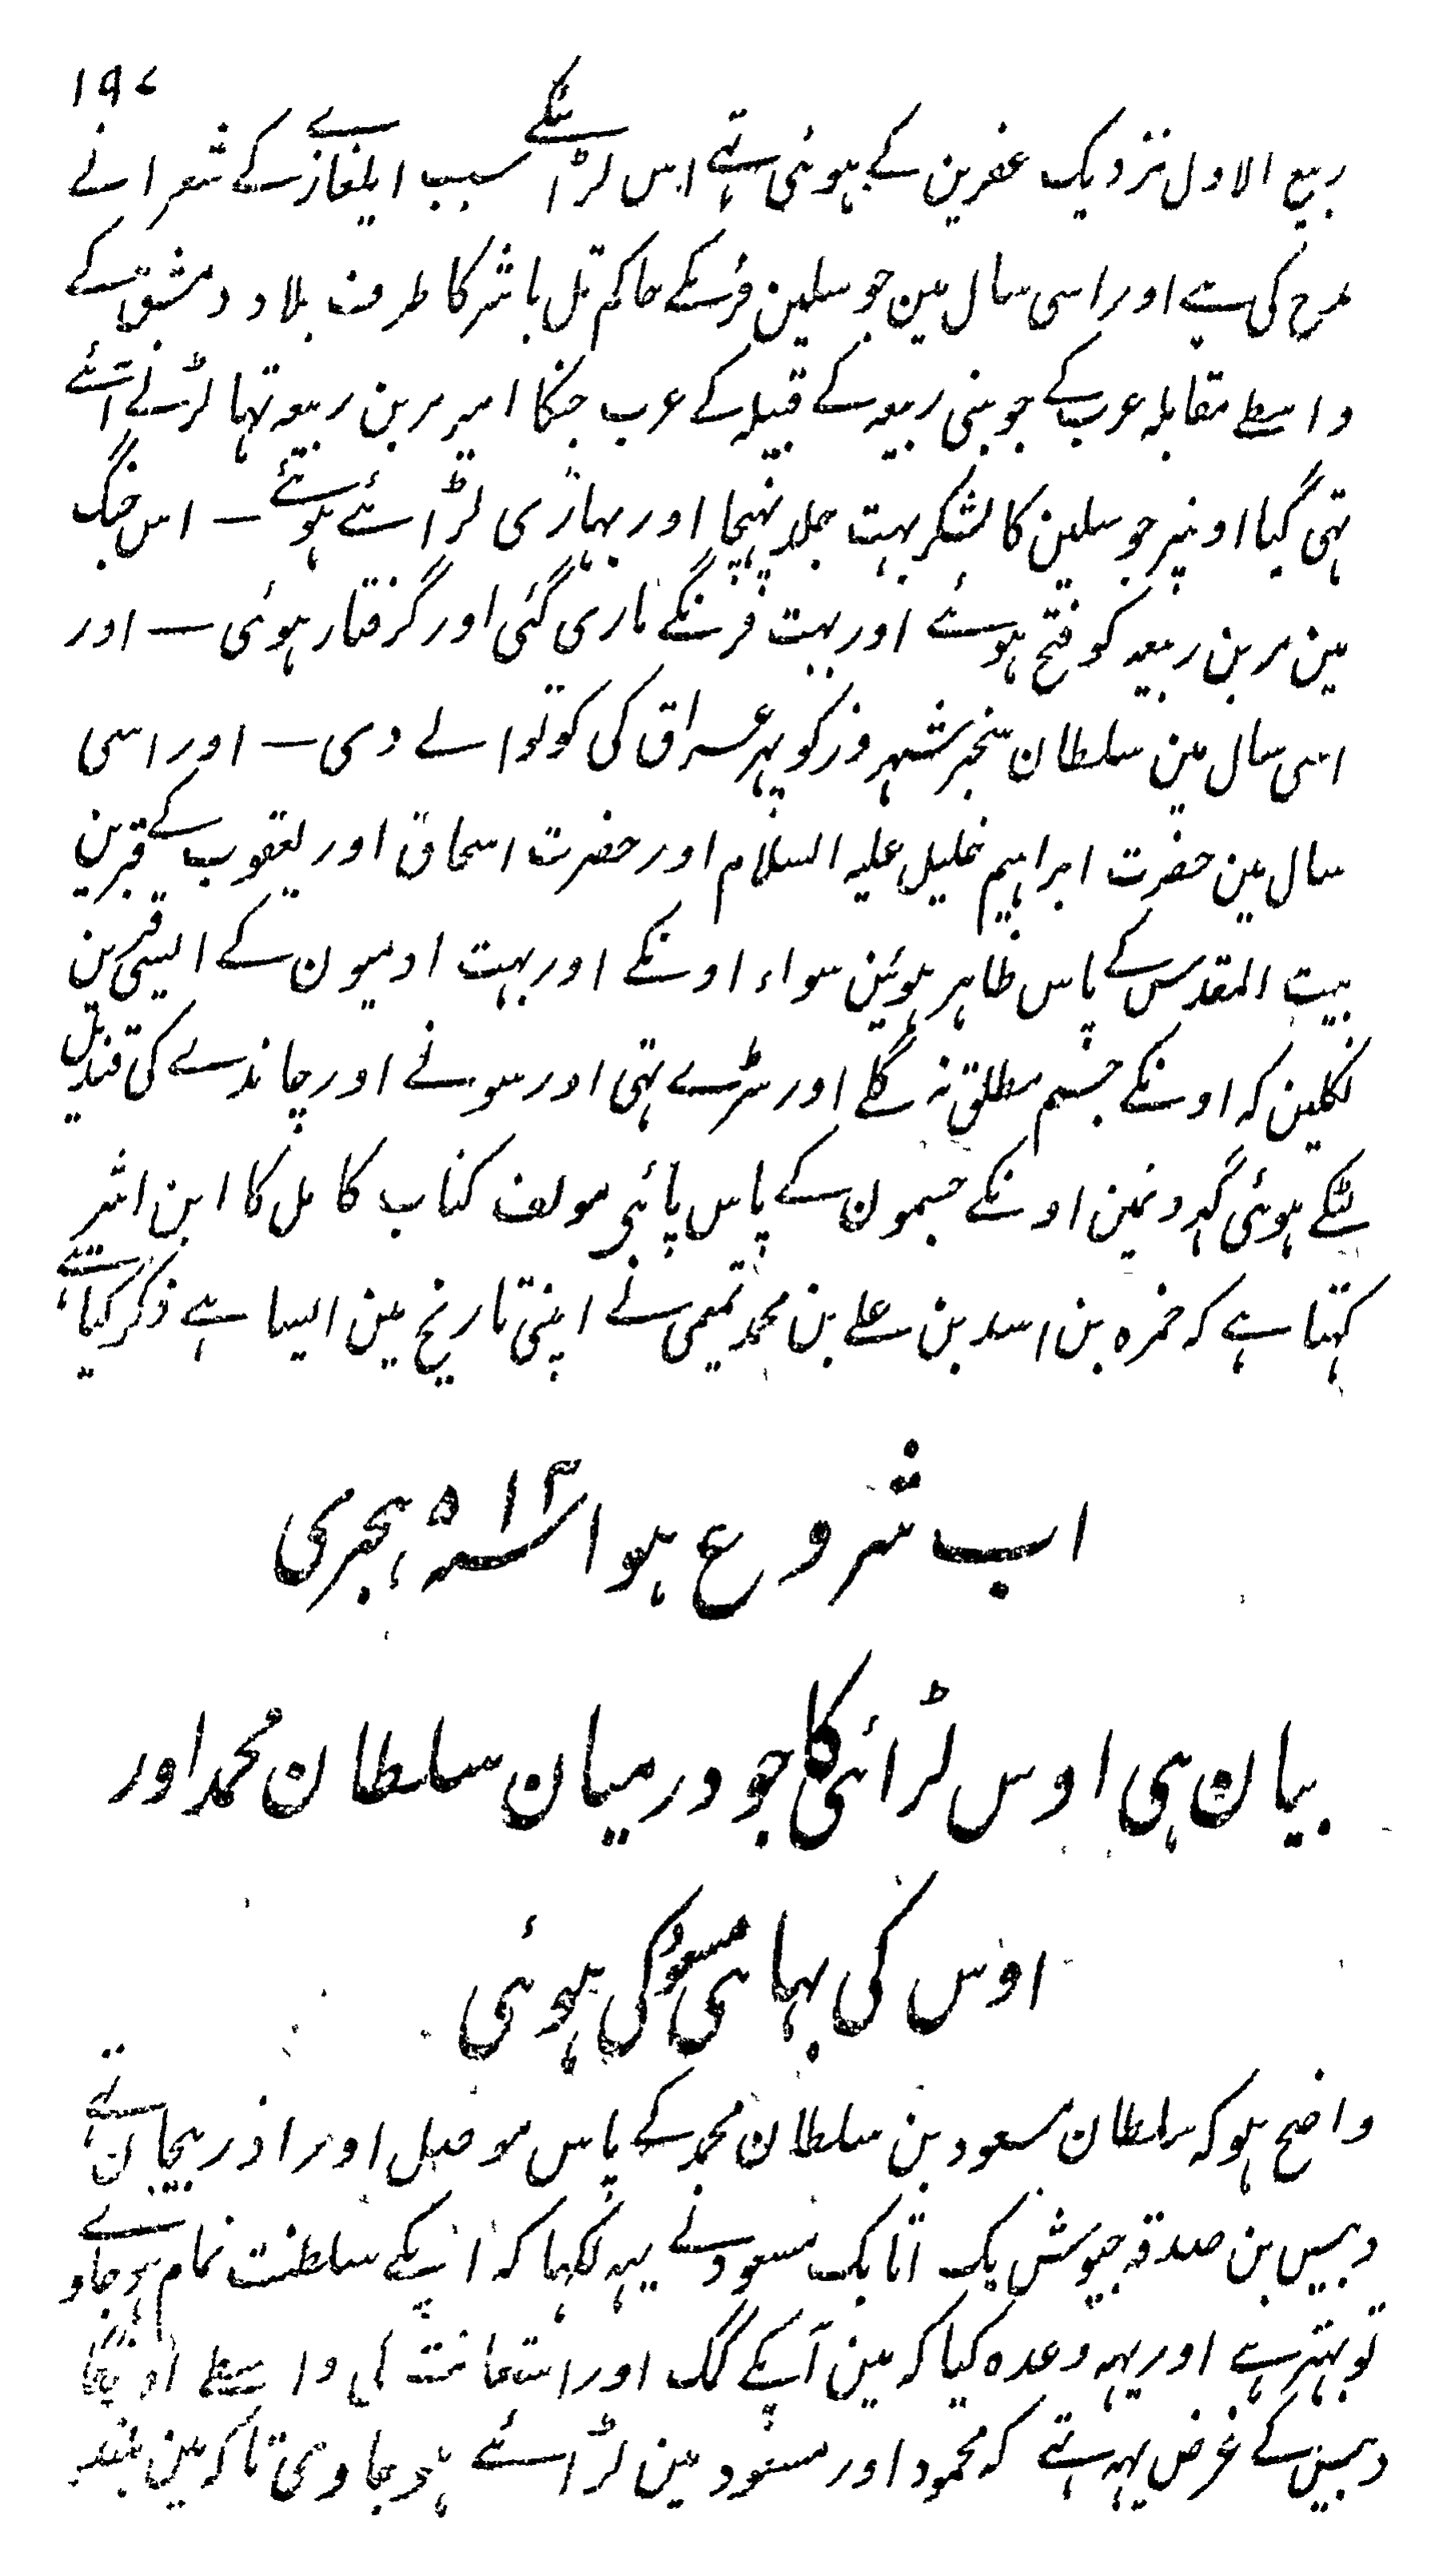 ۱۹۷
ربیع الاول نزدیک عفرین کے ہوئی تہے اس لڑائیکے سبب ایلغازے کے شعرا نے
مدح کی ہے اور اسی سال مین جوسلین فرنگے حاکم تل باشر کا طرف بلاد دمشق کے
واسطے مقابلہ عرب کے جو بنی ربیعہ کے قبیلہ کے عرب جنکا امیر مر بن ربیعہ تہا لڑنے ائے
تہی گیا اونپر جوسلین کا لشکر بہت جلد پہنچا اور بہاری لڑائے ہوئے – اس جنگ
مین مر بن ربیعہ کو فتح ہوئے اور بہت فرنگے ماری گئی اور گرفتار ہوئی – اور
اسی سال مین سلطان سنجر شہروز کو پہر عراق کی کوتوالے دی – اور اسی
سال مین حضرت ابراہیم خلیل علیہ السلام اور حضرت اسحاق اور یعقوب کے قبرین
بیت المقدس کے پاس ظاہر ہوئین سواء اونکے اور بہت ادمیون کے ایسی قبرین
نکلین کہ اونکے جسم مطلق نہ گلے اور سڑے تہی اور سونے اور چاندے کی قندیل
لٹکے ہوئی گہرونمین اونکے جسمون کے پاس پائی مولف کتاب کامل کا ابن اثیر
کہتا ہے کہ حمزہ بن اسد بن علے بن محمد تمیمی نے اپنی تاریخ مین ایسا ہے ذکر کیا ہے
اب شروع ہوا سنہ ۵۱۳ ہجری
بیان ہی اوس لڑائی کا جو درمیان سلطان محمد اور
اوس کی بہائی مسعود کی ہوئی
واضح ہو کہ سلطان مسعود بن سلطان محمد کے پاس موصل اور اذربیجان تہے
دبیس بن صدقہ جیوش بک اتابک مسعود نے یہہ لکہا کہ اپکے سلطنت تمام ہوجاوے
تو بہتر ہے اور یہہ وعدہ کیا کہ مین آپکے کمک اور استعانت کی واسطے
دبیس کے غرض یہہ تہے کہ محمود اور مسعود مین لڑائے ہوجاوی تاکہ مین بلند